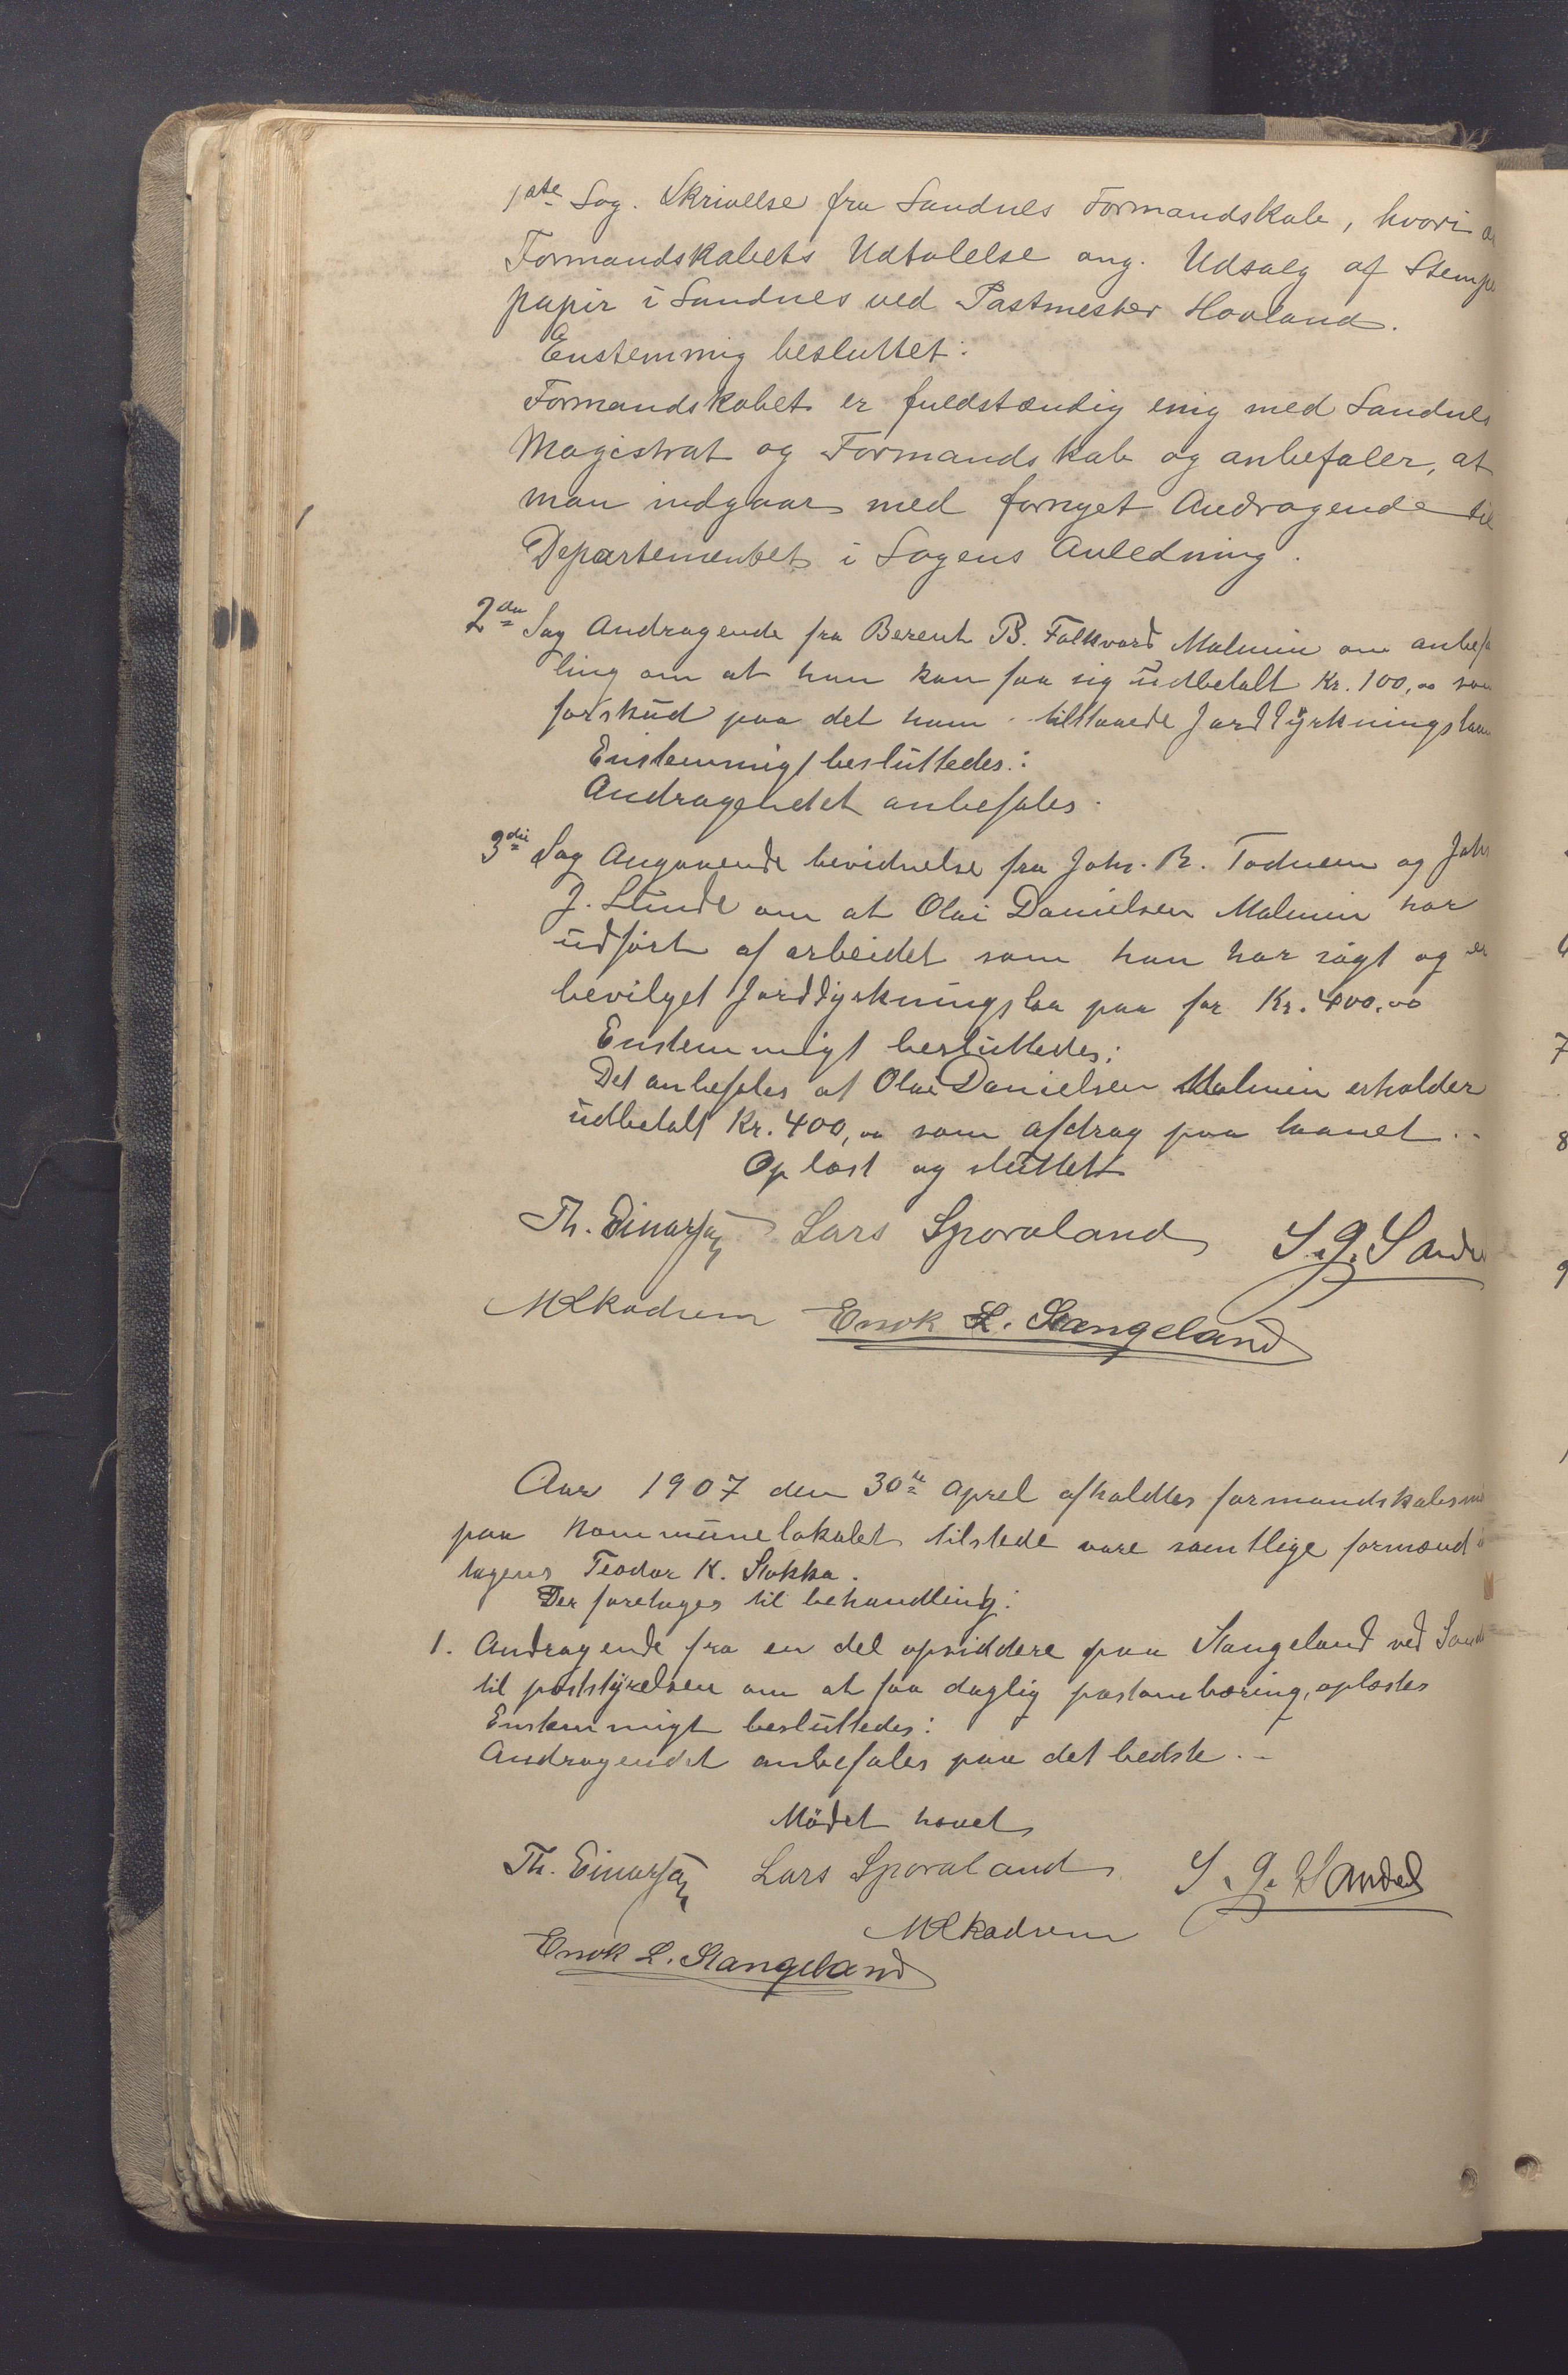 1ste Sag. Skrivelse fra Sandnes Formandskab, hvori
Formandskabets Udtalelse ang. Udsalg af Stempe
papir i Sandnes ved Postmester Hovland.
Enstemmig besluttet:
Formandskabet er fuldstændig enig med Sandnes
Magistrat og Formandskab og anbefaler, at
man indgaar med fornyet Andragende til
Departementet i Sagens Anledning.
2den Sag Andragende fra Berent B. Folkvord Malmin om anbefa
ling om at han kan faa sig udbetalt Kr. 100,00 som
forskud paa det ham tilstaaede Jorddyrkningslaan
Enstemmigt besluttedes:
Andragendet anbefales.
3die Sag Angaaende bevidnelse fra Johs. B. Todnem og Johs
J. Lunde om at Olai Danielsen Malmin har
udført af arbeidet som han har søgt og er
bevilget Jorddyrkningslaa paa for Kr. 400,00
Enstemmigt besluttedes:
Det anbefales at Olai Danielsen Malmin erholder
udbetalt Kr. 400,00 som afdrag paa laanet.
Oplæst og sluttet
Th. Einarsen Lars Sporaland S. J. Sande
M Skadsem Enok L. Stangeland
Aar 1907 den 30te Aprel afholdtes formandskabsmø
paa Kommunelokalet tilstede vare samtlige formænd
tagens Teodor K. Stokka.
Der foretages til behandling:
1. Andragende fra en del opsiddere paa Stangeland ved Sand
til poststyrelsen om at faa daglig postombæring, oplæstes
Enstemmigt besluttedes:
Andragendet anbefales paa det bedste.
Mødet hævet
Th. Einarsen Lars Sporaland S. J. Sandes
M Skadsem
Enok L. Stangeland